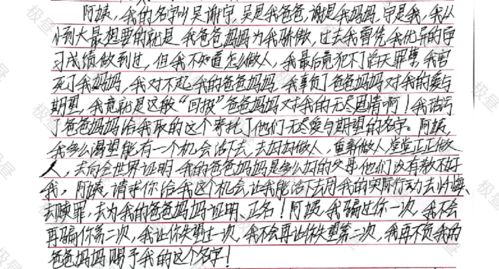 阿姨,我的名字叫吴谢宇,吴是我爸爸,谢是我妈妈,宇是我,我从
小到大最想要的就是我爸爸妈妈为我骄傲,过去我曾凭我优异的学
习成绩做到过,但我不知道怎么做人,我最后竟犯下滔天罪孽,害
死了我妈妈,我对不起我的爸爸妈妈,我辜负了爸爸妈妈对我的爱与
期望,我竟就是这般“回报”爸爸妈妈对我的无尽恩情啊!我玷污
了爸爸妈妈给我取的这个寄托了他们无尽爱与期望的名字。阿姨,
我多么渴望能有一个机会活下去,去好好做人,重新做人,堂堂正正做
人,去向全世界证明,我的爸爸妈妈是多么好的父母,他们没有教不好
我,阿姨,请求你给我这个机会,让我能活下去用我的实际行动去忏悔、
去赎罪,去为我的爸爸妈妈证明、正名!阿姨,我骗过你一次,我不会
再骗你第二次,我让你失望过一次,我不会再让你失望第二次,我再不负我的
爸爸妈妈赐予我的这个名字!
极星